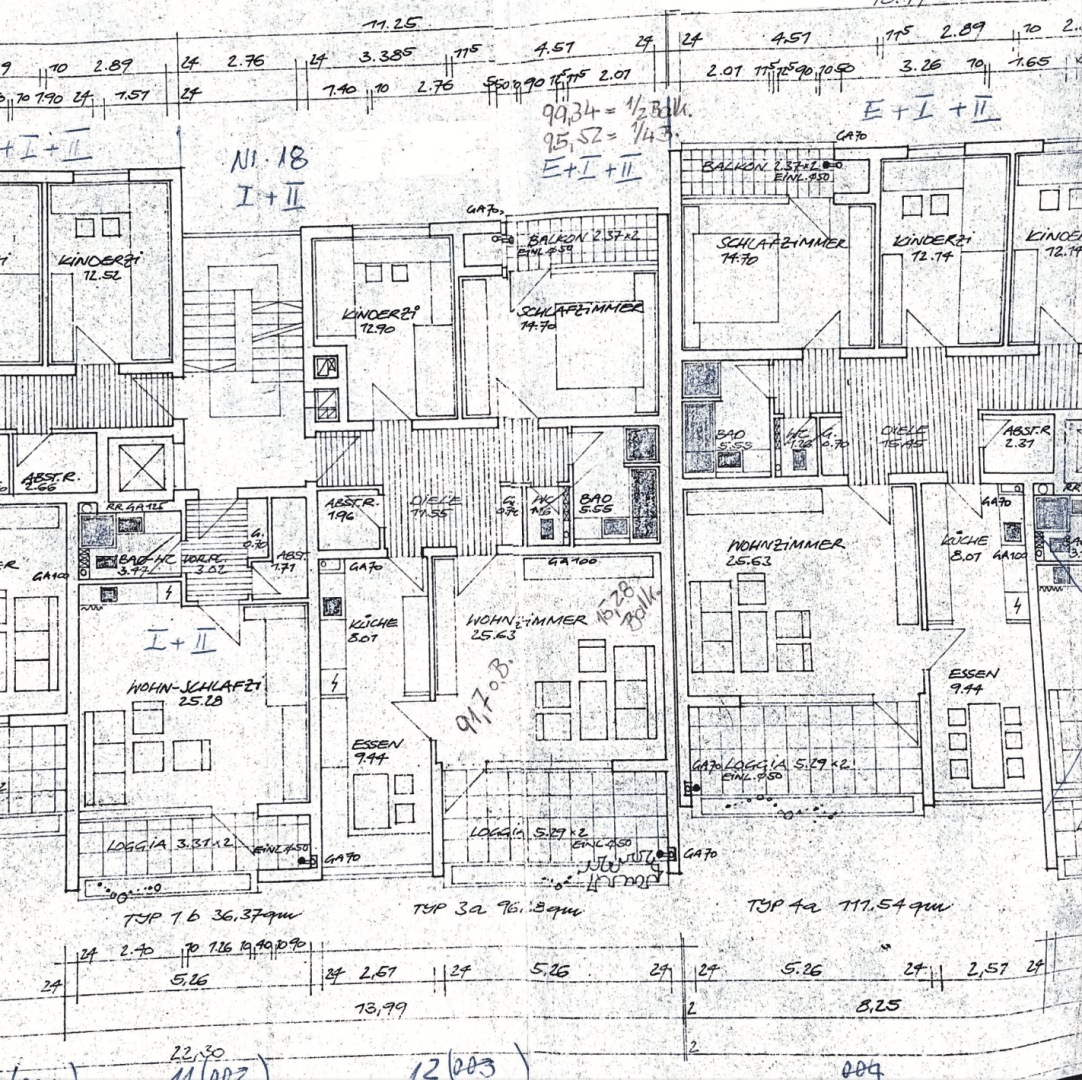 11.25
10 2.89 24 2.76 24 3.385 11⁵ 4.51 24 24 4.51 11⁵ 2.89 10
10 1.90 24 1.51 24 1.40 10 2.76 2.01 2.01 3.26 10 1.65
99,34 = 1/2 Balk.
95,52 = 1/4 B.
E+I+II
E + I + II
+ I + II
NI. 18
I + II
GA70
BALKON 2.37×2
EINL.Ø50
GA70
BALKON 2.37×2
EINL.Ø50
KINDERZI
12.52
KINDERZI
12.90
SCHLAFZIMMER
14.70
SCHLAFZIMMER
14.70
KINDERZI
12.14
ABST.R.
2.66
ABST.R.
1.96
DIELE
11.55
G.
WC
BAD
5.55
BAD
5.55
WC
G.
0.70
DIELE
15.45
ABST.R
2.31
RR GA125
BAD-WC
3.47
3.02
G.
0.70
ABST.
1.71
GA100
GA70
KÜCHE
8.01
GA100
WOHNZIMMER
25.63
15,28
Balk.
91,7 o.B.
WOHNZIMMER
25.63
GA70
KÜCHE
8.01
GA100
I + II
WOHN-SCHLAFZI
25.28
ESSEN
9.44
ESSEN
9.44
LOGGIA 3.31×2
EINL.Ø50
GA70
LOGGIA 5.29×2
EINL.Ø50
GA70
GA70 LOGGIA 5.29×2
EINL.Ø50
TYP 1b 36,37qm
TYP 3a
TYP 4a 111.54 qm
24 2.40 10 1.26
24 5,26 24 2,51 24 5,26 24 24 5.26 24 2,51 24
13,99
8,25
2
22,30
2
12 (003)
004